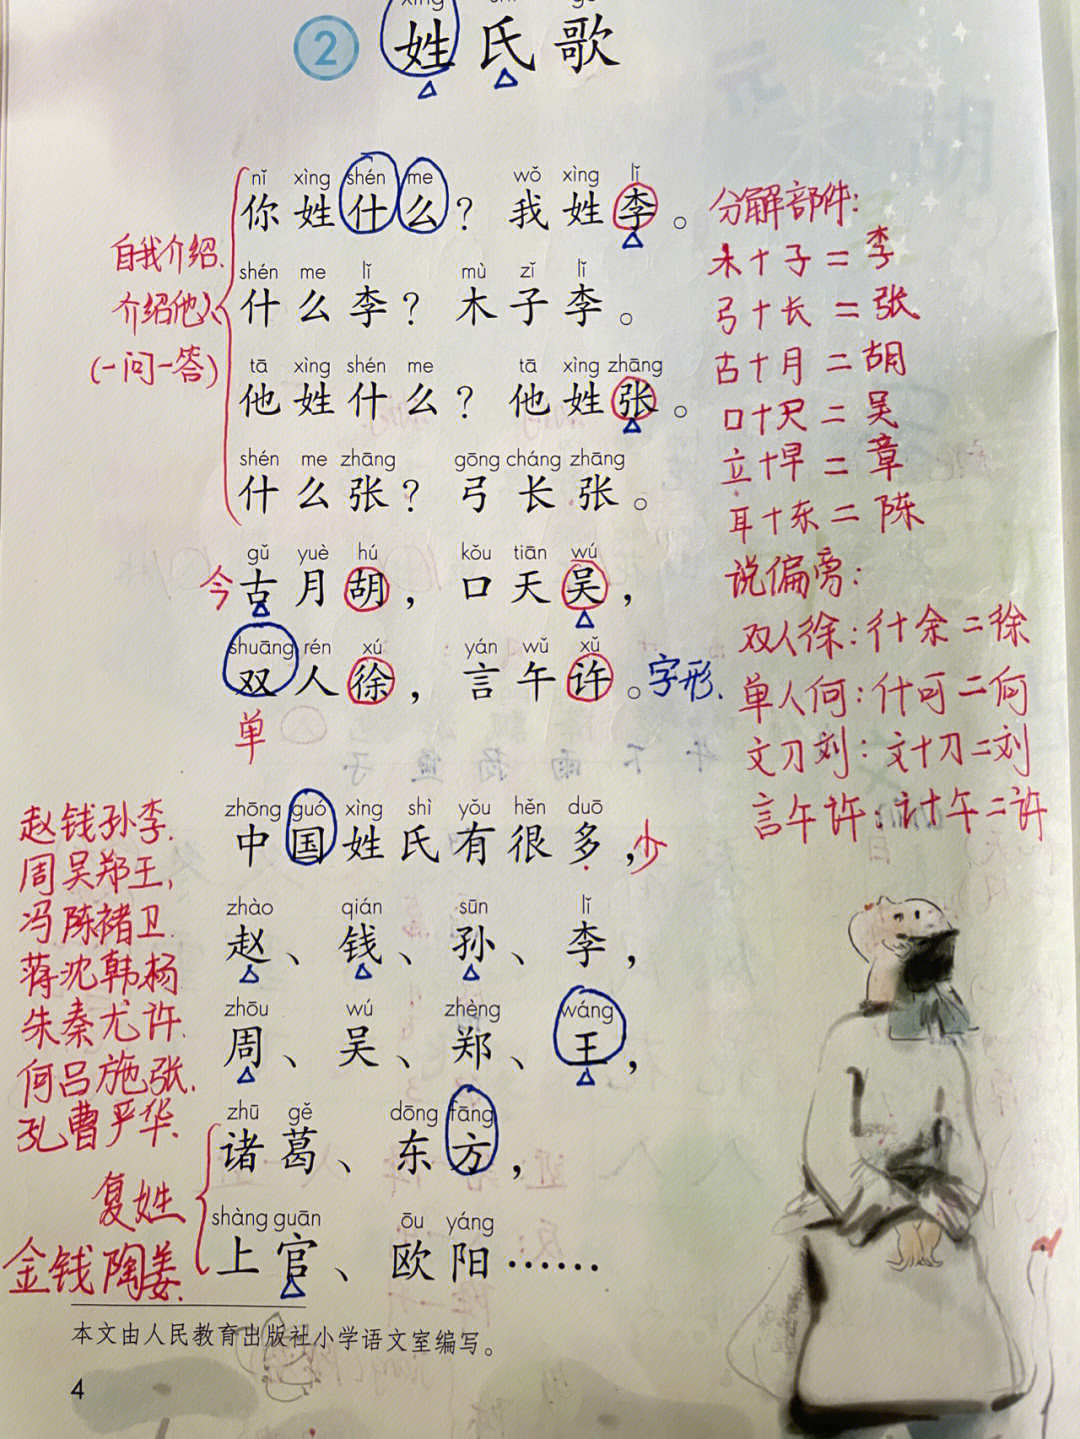 2 姓氏歌
nǐ xìng shén me wǒ xìng lǐ
你姓什么？我姓李。
shén me lǐ mù zǐ lǐ
什么李？木子李。
tā xìng shén me tā xìng zhāng
他姓什么？他姓张。
shén me zhāng gōng cháng zhāng
什么张？弓长张。
自我介绍、
介绍他人
(一问一答)
gǔ yuè hú kǒu tiān wú
今
古月胡，口天吴，
shuāng rén xú yán wǔ xǔ
双人徐，言午许。字形、
单
分解部件：
木+子=李
弓+长=张
古+月=胡
口+天=吴
立+早=章
耳+东=陈
说偏旁：
双人徐：彳+余=徐
单人何：亻+可=何
文刀刘：文+刂=刘
言午许：讠+午=许
zhōng guó xìng shì yǒu hěn duō
中国姓氏有很多，少
zhào qián sūn lǐ
赵、钱、孙、李，
zhōu wú zhèng wáng
周、吴、郑、王，
zhū gě dōng fāng
诸葛、东方，
shàng guān ōu yáng
上官、欧阳……
赵钱孙李、
周吴郑王，
冯陈褚卫、
蒋沈韩杨
朱秦尤许、
何吕施张、
孔曹严华、
复姓
金钱陶姜、
本文由人民教育出版社小学语文室编写。
4